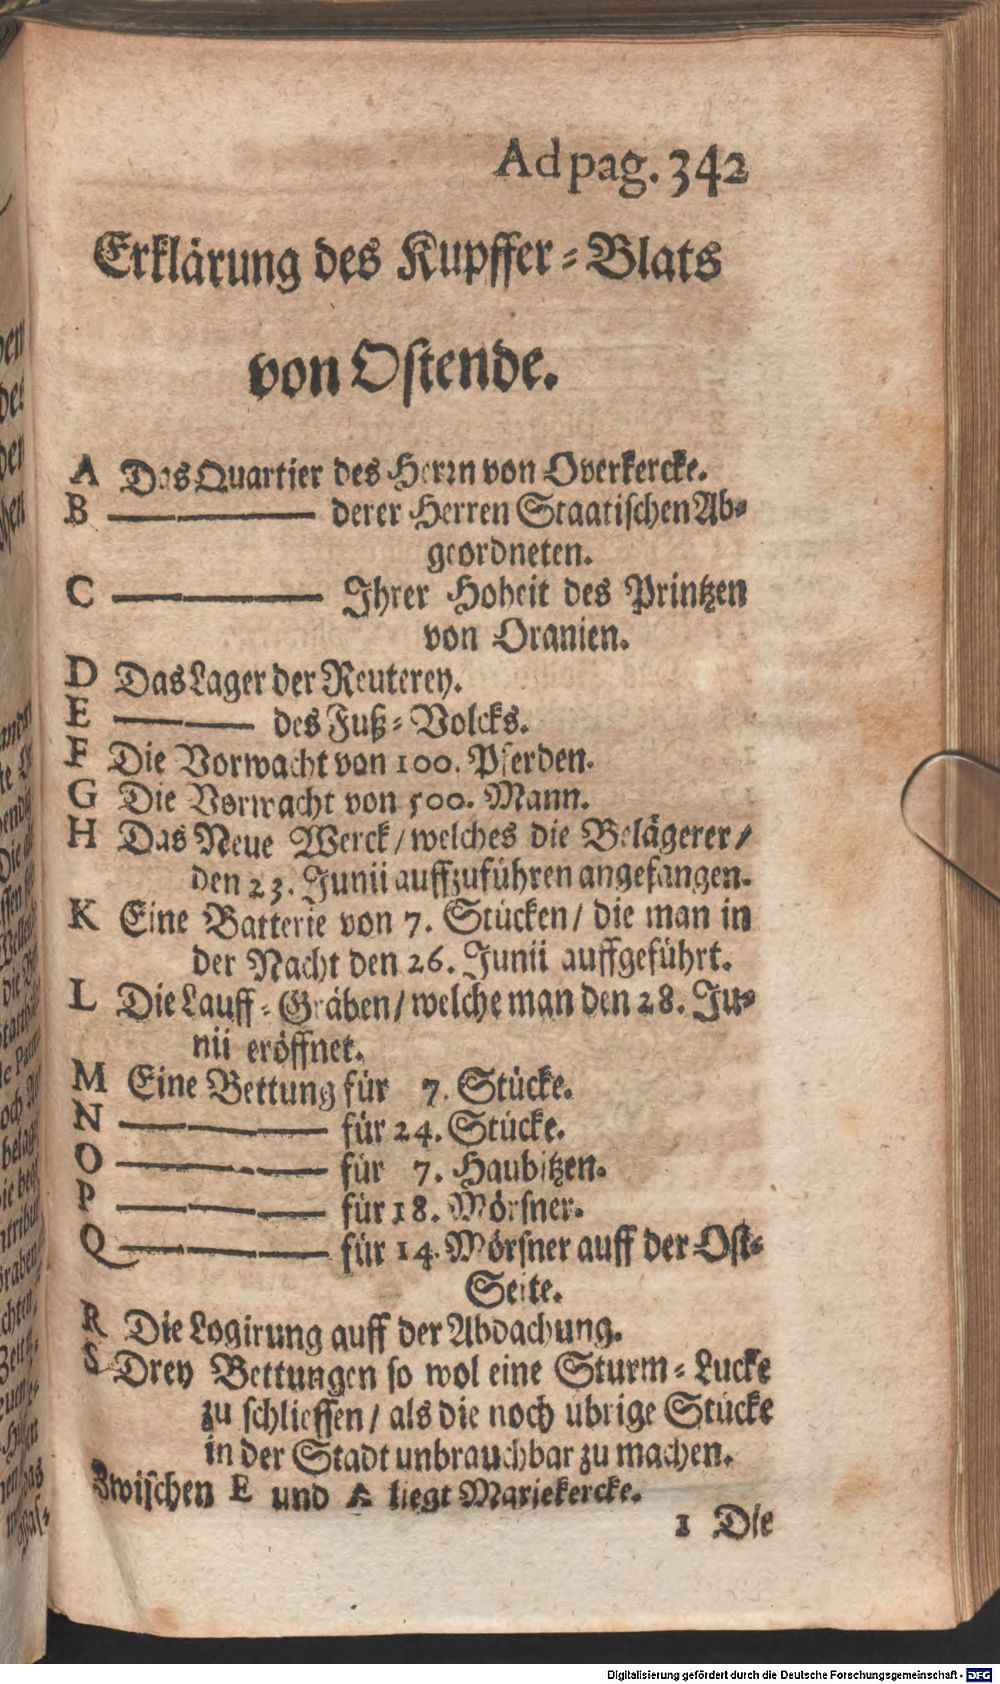 Ad pag. 342
Erklärung des Kupffer-Blats
von Ostende.
A Das Quartier des Herrn von Overkercke.
B ——— derer Herren Staatischen Ab-
geordneten.
C ——— Ihrer Hoheit des Printzen
von Oranien.
D Das Lager der Reuterey.
E ——— des Fuß-Volcks.
F Die Vorwacht von 100. Pferden.
G Die Vorwacht von 500. Mann.
H Das Neue Werck / welches die Belägerer /
den 23. Junii auffzuführen angefangen.
K Eine Batterie von 7. Stücken / die man in
der Nacht den 26. Junii auffgeführt.
L Die Lauff-Gräben / welche man den 28. Ju-
nii eröffnet.
M Eine Bettung für 7. Stücke.
N ——— für 24. Stücke.
O ——— für 7. Haubitzen.
P ——— für 18. Mörsner.
Q ——— für 14. Mörsner auff der Ost-
Seite.
R Die Logirung auff der Abdachung.
S Drey Bettungen so wol eine Sturm-Lucke
zu schliessen / als die noch übrige Stücke
in der Stadt unbrauchbar zu machen.
Zwischen E und A liegt Mariekercke.
1 Die
Digitalisierung gefördert durch die Deutsche Forschungsgemeinschaft - DFG